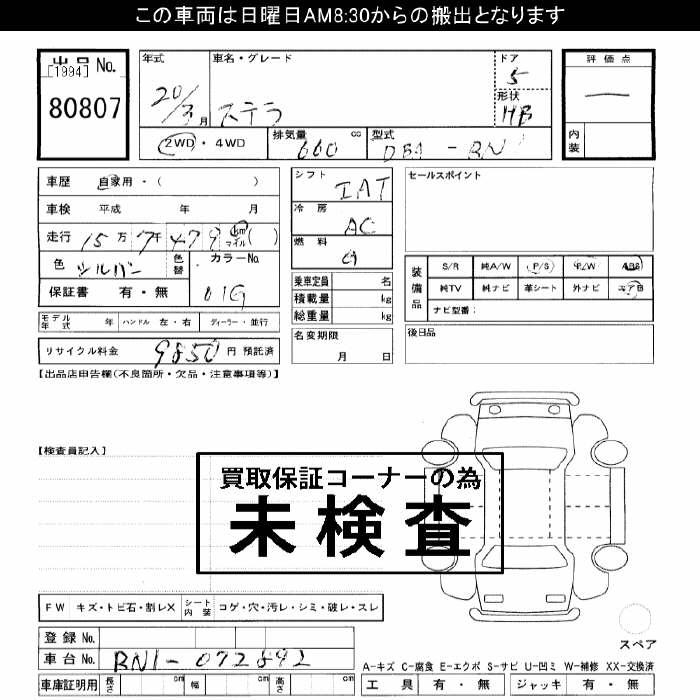 この車両は日曜日AM8:30からの搬出となります
出品 No.
[1994]
80807
年式
20/3月
車名・グレード
ステラ
ドア
5
形状
HB
評価点
内装
2WD・4WD
排気量 660 cc
型式 DBA - RN1
車歴 自家用・( )
車検 平成 年 月
走行 15万7千479 km マイル( )
色 シルバー
色替
カラーNo.
01G
保証書 有・無
モデル年式 年 ハンドル 左・右 ディーラー・並行
リサイクル料金 9850 円 預託済
シフト IAT
冷房 AC
燃料 G
乗車定員 名
積載量 kg
総重量 kg
名変期限
月 日
セールスポイント
装備品
S/R 純A/W P/S P/W ABS
純TV 純ナビ 革シート 外ナビ エアB
ナビ型番:
後日品
【出品店申告欄(不良箇所・欠品・注意事項等)】
【検査員記入】
買取保証コーナーの為
未検査
FW キズ・トビ石・割レX シート内装 コゲ・穴・汚レ・シミ・破レ・スレ
登録No.
車台No. RN1-072892
車庫証明用 長さ cm 幅 cm 高さ cm
スペア
A-キズ C-腐食 E-エクボ S-サビ U-凹ミ W-補修 XX-交換済
工具 有・無 ジャッキ 有・無